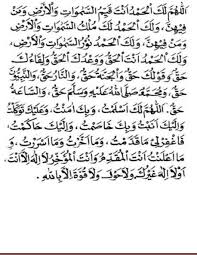 اَللّٰهُمَّ لَكَ الْحَمْدُ اَنْتَ قَيِّمُ السَّمٰوَاتِ وَالْأَرْضِ وَمَنْ
فِيْهِنَّ، وَلَكَ الْحَمْدُ لَكَ مُلْكُ السَّمٰوَاتِ وَالْأَرْضِ
وَمَنْ فِيْهِنَّ، وَلَكَ الْحَمْدُ نُوْرُ السَّمٰوَاتِ وَالْأَرْضِ،
وَلَكَ الْحَمْدُ اَنْتَ الْحَقُّ وَوَعْدُكَ الْحَقُّ وَلِقَاءُكَ
حَقٌّ وَقَوْلُكَ حَقٌّ وَالْجَنَّةُ حَقٌّ، وَالنَّارُ حَقٌّ، وَالنَّبِيُّوْنَ
حَقٌّ، وَمُحَمَّدٌ صَلَّى اللهُ عَلَيْهِ وَسَلَّمَ حَقٌّ، وَالسَّاعَةُ
حَقٌّ. اَللّٰهُمَّ لَكَ اَسْلَمْتُ، وَبِكَ اٰمَنْتُ، وَعَلَيْكَ تَوَكَّلْتُ
وَاِلَيْكَ اَنَبْتُ وَبِكَ خَاصَمْتُ، وَاِلَيْكَ حَاكَمْتُ،
فَاغْفِرْلِيْ مَاقَدَّمْتُ، وَمَا اَخَّرْتُ وَمَا اَسْرَرْتُ، وَ
مَا اَعْلَنْتُ اَنْتَ الْمُقَدِّمُ وَاَنْتَ الْمُؤَخِّرُ لَا اِلٰهَ اِلَّا اَنْتَ.
اَوْلَا اِلٰهَ غَيْرُكَ وَلَاحَوْلَ وَلَا قُوَّةَ اِلَّا بِاللهِ.